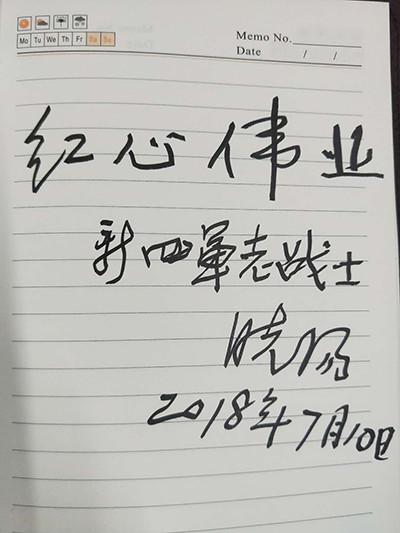 Memo No.
Mo Tu We Th Fr Sa Su
Date / /
红心伟业
新四军老战士
2018年7月10日